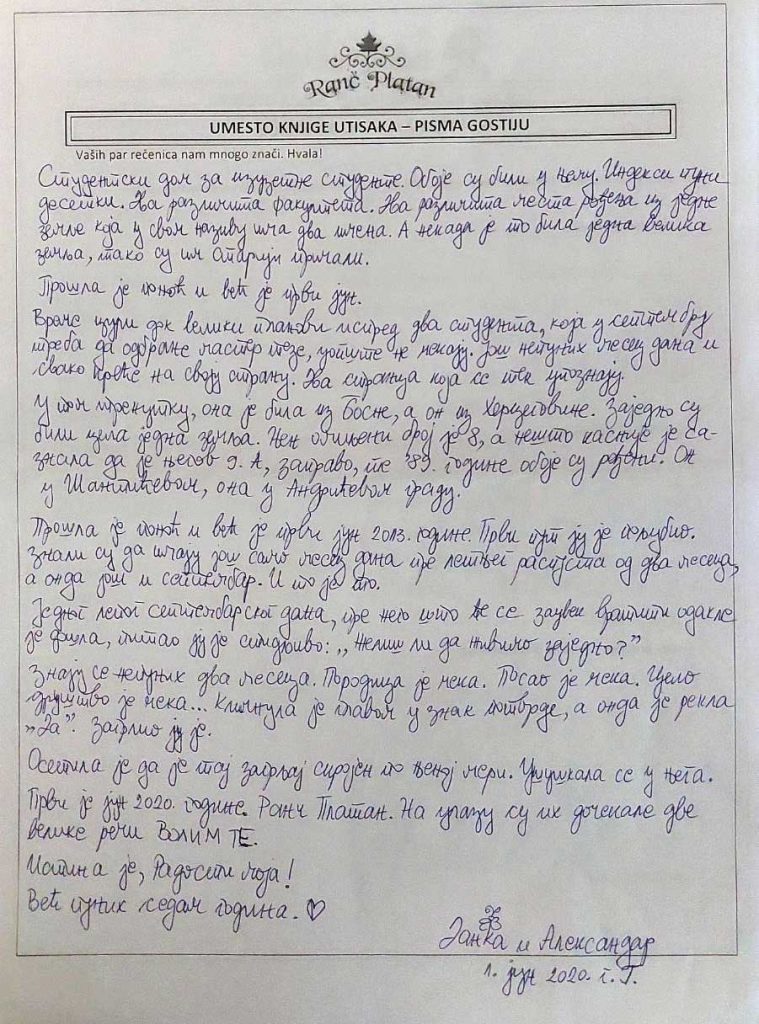 Ranč Platan
UMESTO KNJIGE UTISAKA – PISMA GOSTIJU
Vaših par rečenica nam mnogo znači. Hvala!
Студентски дом за изузетне студенте. Обоје су били у њему. Индекси пуни
десетки. Два различита факултета. Два различита места рођења из једне
земље која у свом називу има два имена. А некада је то била једна велика
земља, тако су им старији причали.
Прошла је поноћ и већ је први јун.
Време цури док велики планови испред два студента, која у септембру
треба да одбране мастер тезе, уопште не чекају. Још непуних месец дана и
свако креће на своју страну. Два странца која се тек упознају.
У том тренутку, она је била из Босне, а он из Херцеговине. Заједно су
били цела једна земља. Њен омиљени број је 8, а нешто касније је са-
знала да је његов 9. А, заправо, те '89. године обоје су рођени. Он
у Шантићевом, она у Андрићевом граду.
Прошла је поноћ и већ је први јун 2013. године. Први пут ју је пољубио.
Знали су да имају још само месец дана пре летњег распуста од два месеца,
а онда још и септембар. И то је то.
Једног лепог септембарског дана, пре него што ће се заувек вратити одакле
је дошла, питао ју је стидљиво: „Желиш ли да живимо заједно?”
Знају се непуних два месеца. Породица је чека. Посао је чека. Цело
друштво је чека... Климнула је главом у знак потврде, а онда је рекла
„Да”. Загрлио ју је.
Осетила је да је тај загрљај скројен по њеној мери. Ушушкала се у њега.
Први је јун 2020. године. Ранч Платан. На улазу су их дочекале две
велике речи ВОЛИМ ТЕ.
Истина је, Радости моја!
Већ пуних седам година. ♡
Јанка и Александар
1. јун 2020. г. Г.